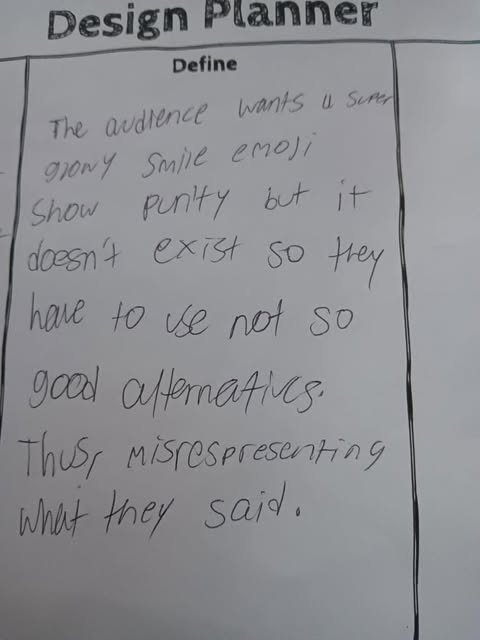 Design Planner
Define
The audience wants a super
glowy smile emoji
show purity but it
doesn't exist so they
have to use not so
good alternatives.
Thus, misrespresenting
what they said.